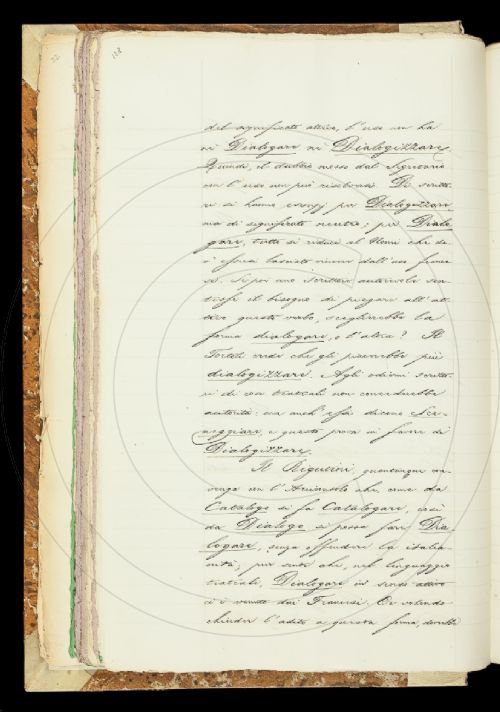 138
del significato attivo, l'uso non ha
nè Dialogare nè Dialogizzare.
Quindi, il dubbio messo dal Segretario
con l'uso non può risolversi. Di scritto-
ri si hanno esempj per Dialogizzare
ma di significato neutro: per Dialo-
gare, tutto si riduce al
lasciato dall'uso
se. Se poi uno Scrittore autorevole sen-
tisse il bisogno di piegare all'at-
tivo questo verbo, sceglierebbe la
forma dialogare, o l'altra? Il
Tortoli crede che gli piacerebbe più
dialogizzare. Agli odierni scritto-
ri di cose teatrali non concederebbe
autorità: ma anch'essi dicono Sce-
neggiare, e questo prova in favore di
Dialogizzare.
Il Rigutini, quantunque con-
venga con l'Arciconsolo che, come da
Catalogo si fa Catalogare, così
da Dialogo si possa fare Dia-
logare, senza offendere la italia-
nità, pur sente che, nel linguaggio
teatrale, Dialogare in senso attivo
ci è venuto dai Francesi. Or volendo
chiuder l'adito a questa forma, dovrebbe